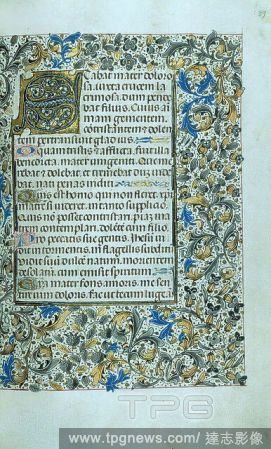 Stabat mater doloro
sa. iuxta crucem la
crimosa. dum pene
bat filius. Cuius ai
mam gementem.
contristantem & dolen
tem pertransiuit gladius.
O quam tristis & afflicta. fuit illa
benedicta. mater unigeniti. Que me
rebat & dolebat. et tremebat dum
bat. nati penas
est homo qui non fleret. xpi
matrem si uideret. in tanto supplicio.
Quis non posset contristari. piam ma
trem contemplari. dolentem cum filio.
Pro peccatis sue gentis. Ihesum in
dit in tormentis. & flagellis
Vidit suum dulcem natum. morientem
desolatum. cum emisit spiritum.
mater fons amoris. me sen
tire uim doloris. fac ut tecum lugea
TPG
www.tpgnews.com / 達志影像